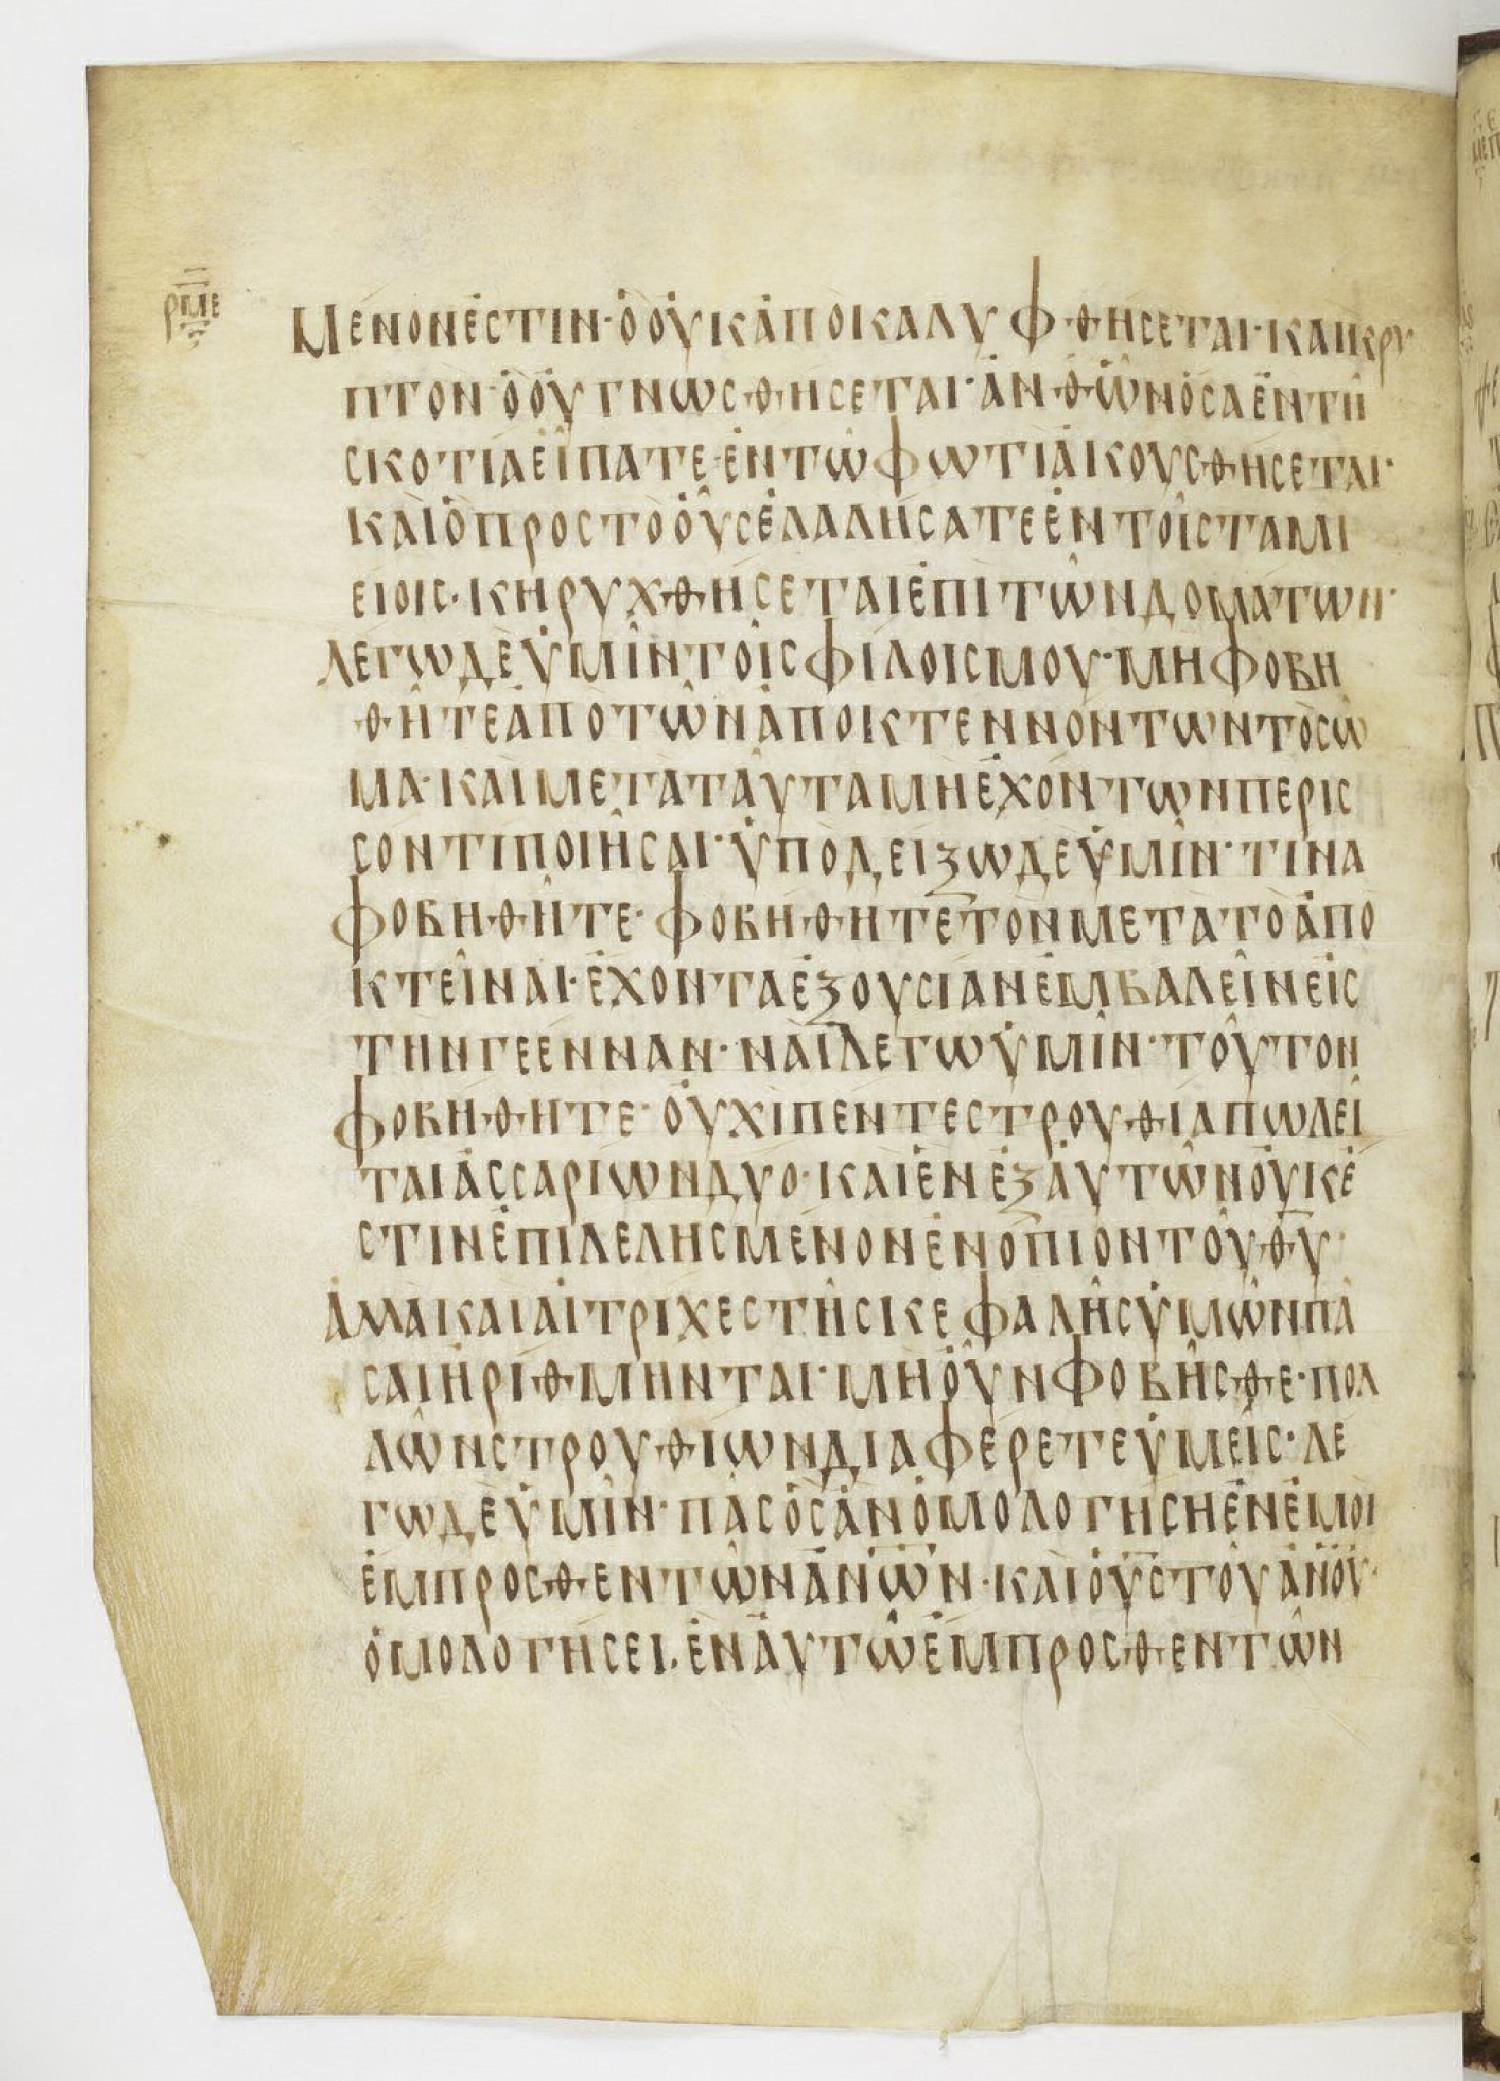 ρμε
μενονἐστιν· ὃ οὐκ ἀποκαλυφθήσεται· καὶ κρυ
πτον· ὃ οὐ γνωσθήσεται· ἀνθ ὧν ὅσα ἐν τῆ
σκοτία εἴπατε· ἐν τῶ φωτὶ ἀκουσθήσεται·
καὶ ὃ προς τὸ οὖς ἐλαλήσατε ἐν τοῖς ταμι
είοις· κηρυχθήσεται ἐπὶ τῶν δομάτων·
λέγω δὲ ὑμῖν τοῖς φίλοις μου· μὴ φοβη
θῆτε ἀπὸ τῶν ἀποκτεννόντων τὸ σῶ
μα· καὶ μετα ταῦτα μὴ ἐχόντων περισ
σον τι ποιῆσαι· ὑποδείξω δὲ ὑμῖν· τίνα
φοβηθῆτε· φοβήθητε τὸν μετα το ἀπο
κτεῖναι· ἔχοντα ἐξουσίαν ἐμβαλεῖν εἰς
την γεενναν· ναὶ λέγω ὑμῖν· τοῦτον
φοβήθητε· οὐχὶ πέντε στρουθία πωλεῖ
ται ἀσσαρίων δύο· καὶ ἓν ἐξ αὐτῶν οὐκ ἔ
στιν ἐπιλελησμένον ἐνόπιον τοῦ θυ·
ἁμα και αἱ τρίχες τῆς κεφαλῆς ὑμῶν πᾶ
σαι ἠρίθμηνται· μὴ οὖν φοβῆσθε· πολ
λῶν στρουθίων διαφέρετε ὑμεῖς· λέ
γω δὲ ὑμῖν· πᾶς ὃς ἂν ὁμολογήση ἐν ἐμοὶ
ἔμπροσθεν τῶν ἀνων· καὶ ὁ υς τοῦ ἀνου·
ὁμολογήσει· ἐν αὐτῶ ἔμπροσθεν τῶν